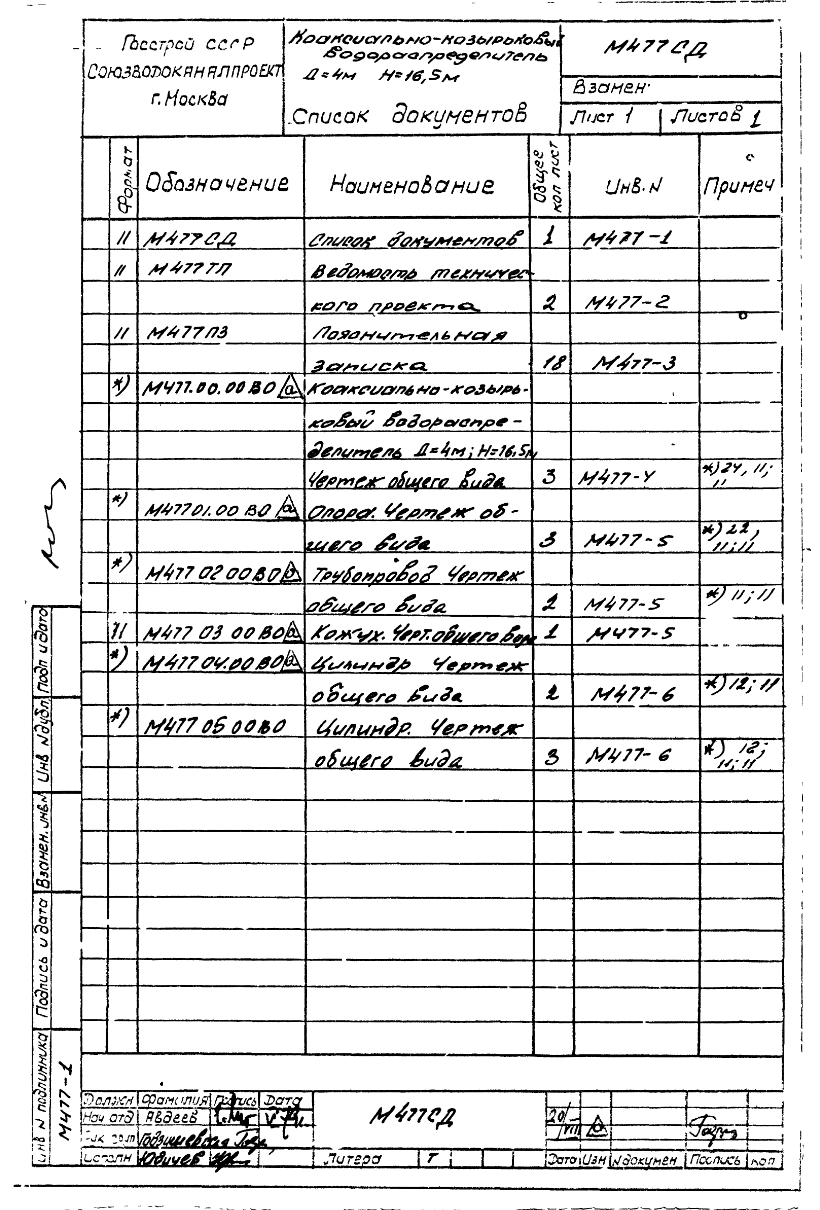 Госстрой СССР
СОЮЗВОДОКАНАЛПРОЕКТ
г. Москва
Коаксиально-козырьковый
водораспределитель
Д=4м Н=16,5м
Список документов
М477СД
Взамен:
Лист 1 Листов 1
Формат Обозначение Наименование Общее кол лист Инв. N Примеч
11 М477СД Список документов 1 М477-1
11 М477ТП Ведомость техничес-
кого проекта 2 М477-2
11 М477ПЗ Пояснительная
записка 18 М477-3
*) М477.00.00ВО а Коаксиально-козырь-
ковый водораспре-
делитель Д=4м; Н=16,5м
Чертеж общего вида 3 М477-4 *) 24, 11;
11
*) М47701.00ВО а Опора. Чертеж об-
щего вида 3 М477-5 *) 22,
11;11
*) М477 02 00ВО а Трубопровод Чертеж
общего вида 2 М477-5 *) 11; 11
11 М477 03 00ВО а Кожух. Черт. общего вида 1 М477-5
*) М477 04.00ВО а Цилиндр Чертеж
общего вида 2 М477-6 *) 12; 11
*) М477 05 00ВО Цилиндр. Чертеж
общего вида 3 М477-6 *) 12;
11; 11
Подп и дата
Инв N дубл
Взамен. инв N
Подпись и дата
Инв N подлинника
М477-1
Должн Фамилия Подпись Дата
Нач отд Авдеев
Исполн Юдичев
М477СД
Литера Т
20/VII а
Дата Изм N докумен Подпись кол